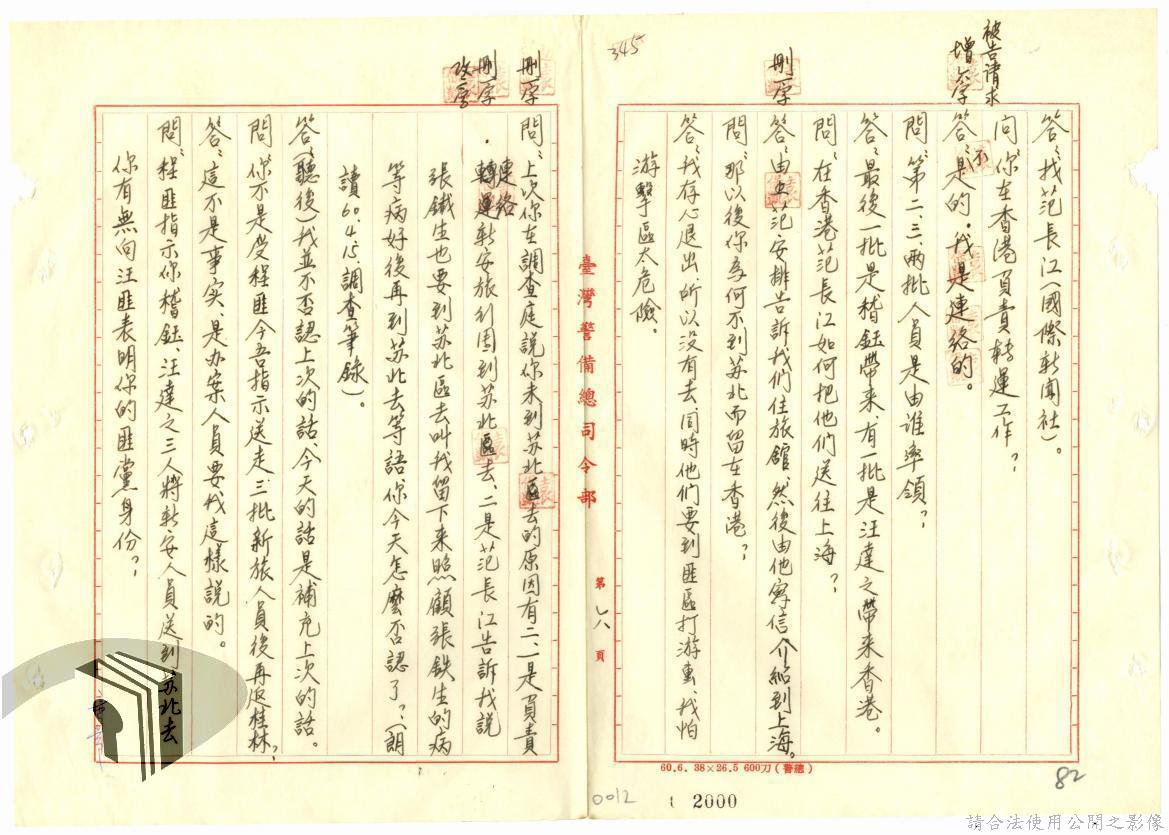 被告請求
增八字
答：找范長江（國際新聞社）。
问：你在香港負責轉運工作？
答：不是的。我是連絡的。
問：第二、三、兩批人員是由谁率領？
答：最後一批是稽鈺帶来有一批是汪達之帶来香港。
問：在香港范長江如何把他們送往上海？
刪一字
答：由范安排告訴我們住旅館，然後由他寫信介紹到上海。
問：那以後你為何不到苏北而留在香港？
答：我存心退出所以没有去同時他們要到匪區打游击，我怕
游擊區太危險。
60.6. 38×26.5 600刀（警總）
82
2000
0012
臺灣警備總司令部
第 頁
345
刪一字
問：上次你在調查庭説你未到苏北區去的原因有二、一是負責
刪一字
改二字
連絡
轉運新安旅行團到苏北區去、二是范長江告訴我説
張鐵生也要到苏北區去叫我留下来照顧張鉄生的病
等病好後再到苏北去等語你今天怎麼否認了？（朗
讀60.4.15調查筆錄）。
答：（聽後）我並不否認上次的話，今天的話是補充上次的話。
問：你不是受程匪今吾指示送走三批新旅人員後再返桂林？
答：這不是事实、是办案人員要我這樣説的。
問：程匪指示你稽鈺、汪達之三人將新安人員送到苏北去
你有無向汪匪表明你的匪黨身份？
請合法使用公開之影像